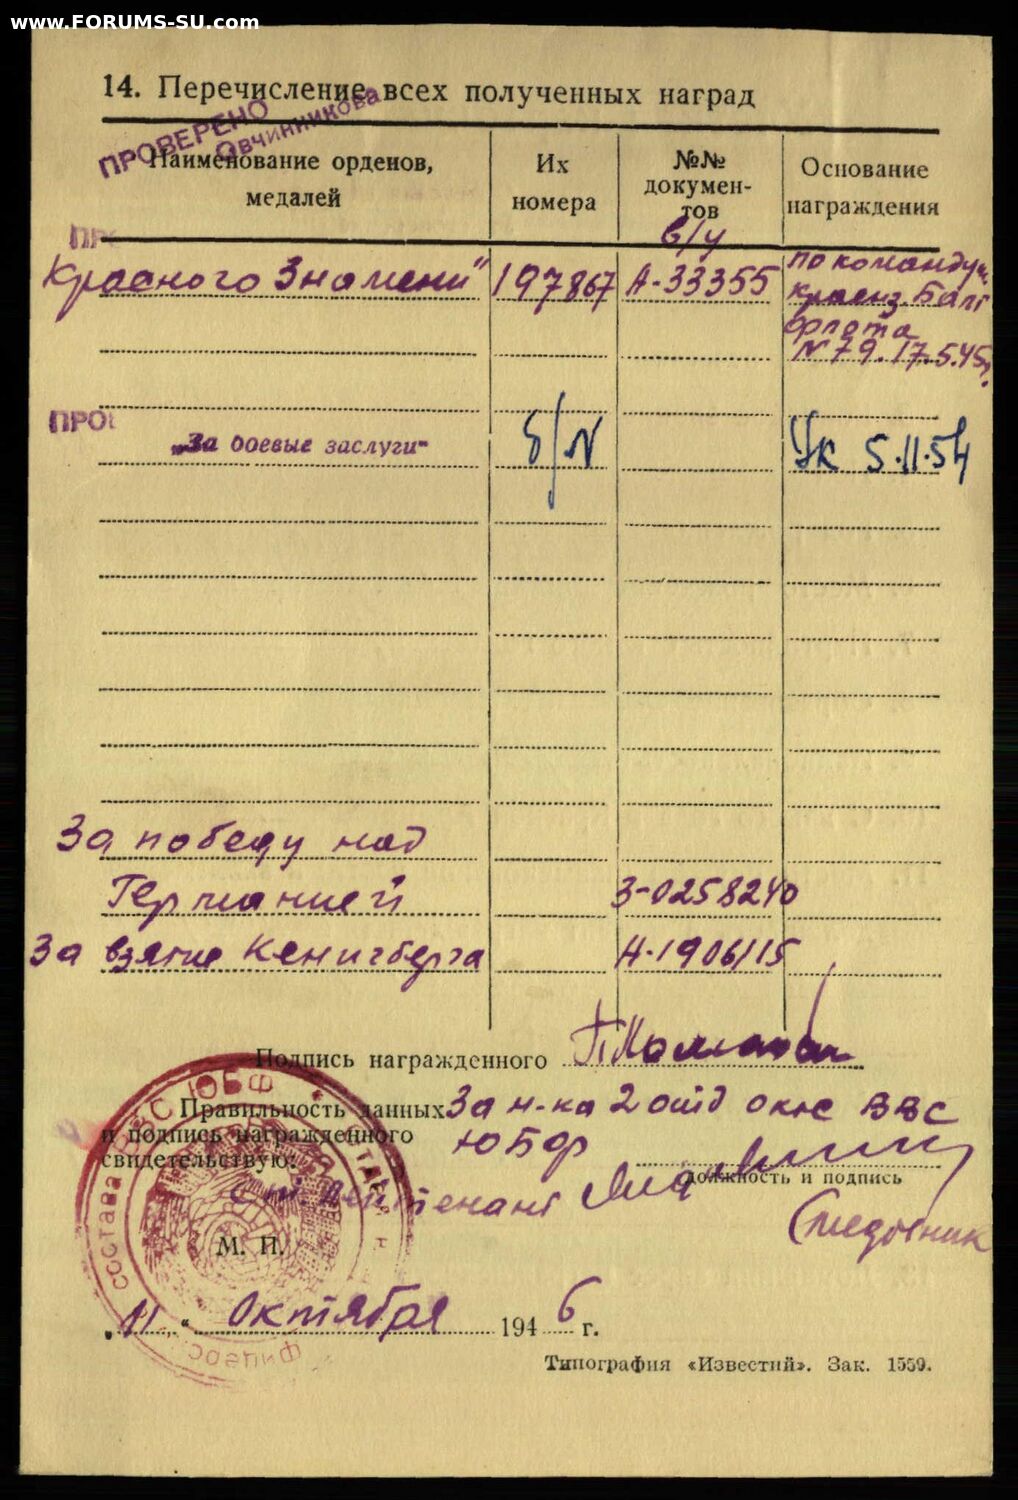 www.FORUMS-SU.com
14. Перечисление всех полученных наград
ПРОВЕРЕНО
Овчинникова
Наименование орденов, медалей
Их номера
№№ докумен-тов
Основание награждения
ПР
в/у
Красного Знамени"
197867
А-33355
по команд
красноз. Балт
флота
N 79. 17.5.45г.
ПРО
„За боевые заслуги"
б/N
Ук 5.11.54
За победу над
Германией
З-0258240
За взятие Кенигберга
Подпись награжденного
Правильность данных
и подпись награжденного
свидетельствую:
За н-ка 2 отд окс ВВС
ЮБФ
должность и подпись
лейтенант
М. П.
„11" Октября 1946 г.
Типография «Известий». Зак. 1559.